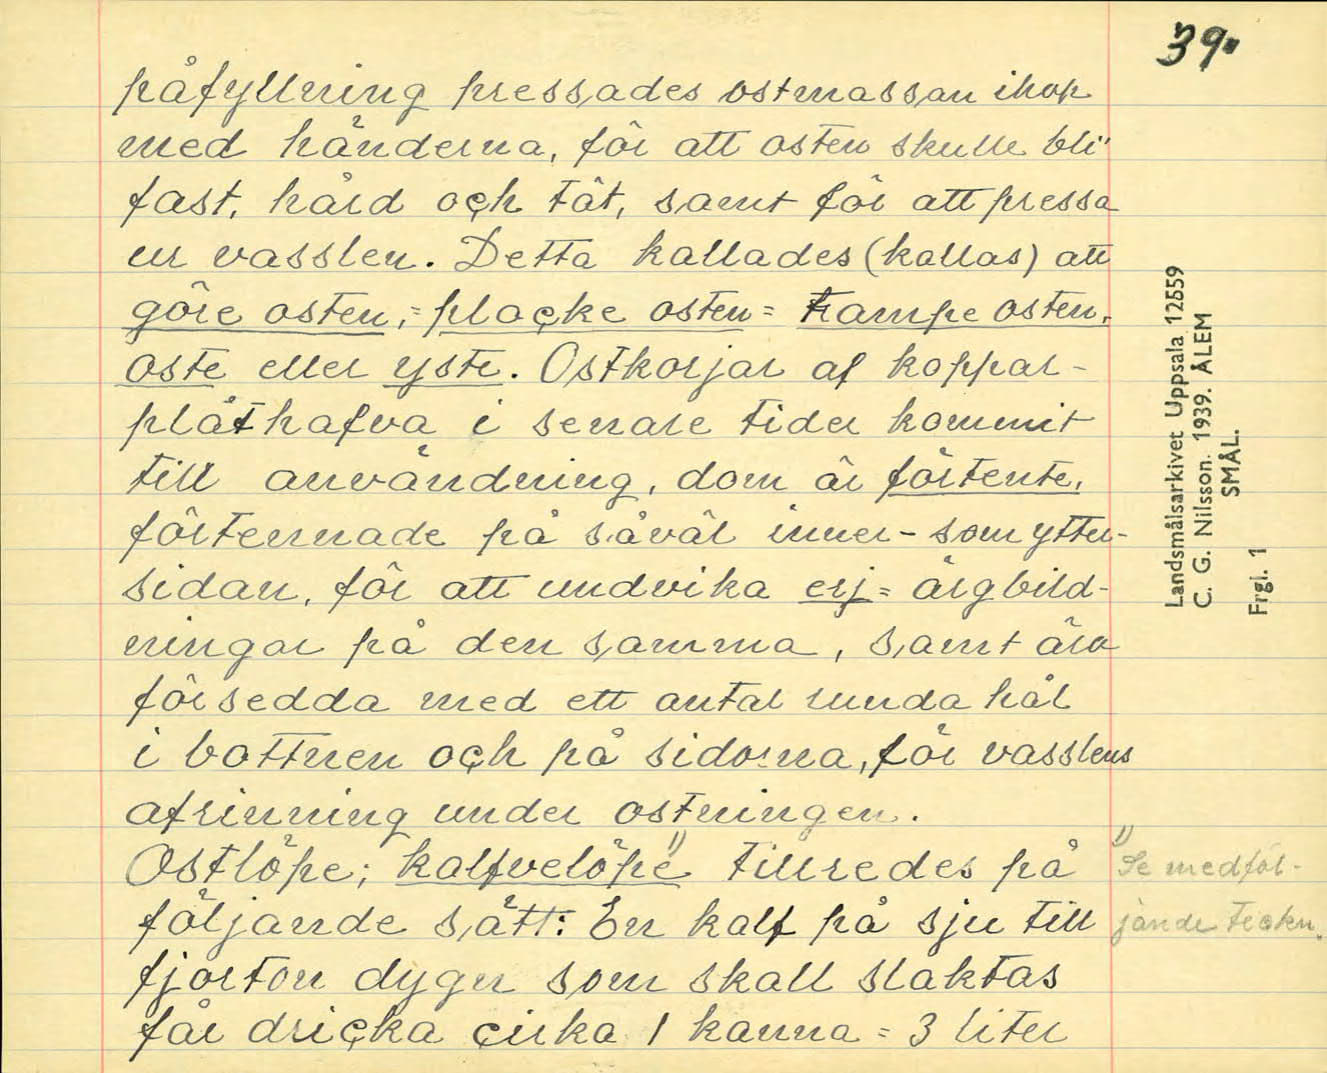 39.
påfyllning pressades ostmassan ihop
med händerna, för att osten skulle bli
fast, hård och tät, samt för att pressa
ur vasslen. Detta kallades (kallas) att
göre osten, = plocke osten = trampe osten,
oste eller yste. Ostkorjar af koppar-
plåt hafva i senare tider kommit
till användning, dom är förtente,
förtennade på såväl inner- som ytter-
sidan, för att undvika erj = ärgbild-
ningar på den samma, samt äro
försedda med ett antal runda hål
i bottnen och på sidorna, för vasslens
afrinning under ostningen.
Ostlöpe; kalfvelöpe 1) tillredes på
följande sätt: En kalf på sju till
fjorton dygn som skall slaktas
får dricka cirka 1 kanna = 3 liter
1) Se medföl-
jande teckn.
Landsmålsarkivet Uppsala 12559
C. G. Nilsson. 1939. ÅLEM
SMÅL.
Frgl. 1